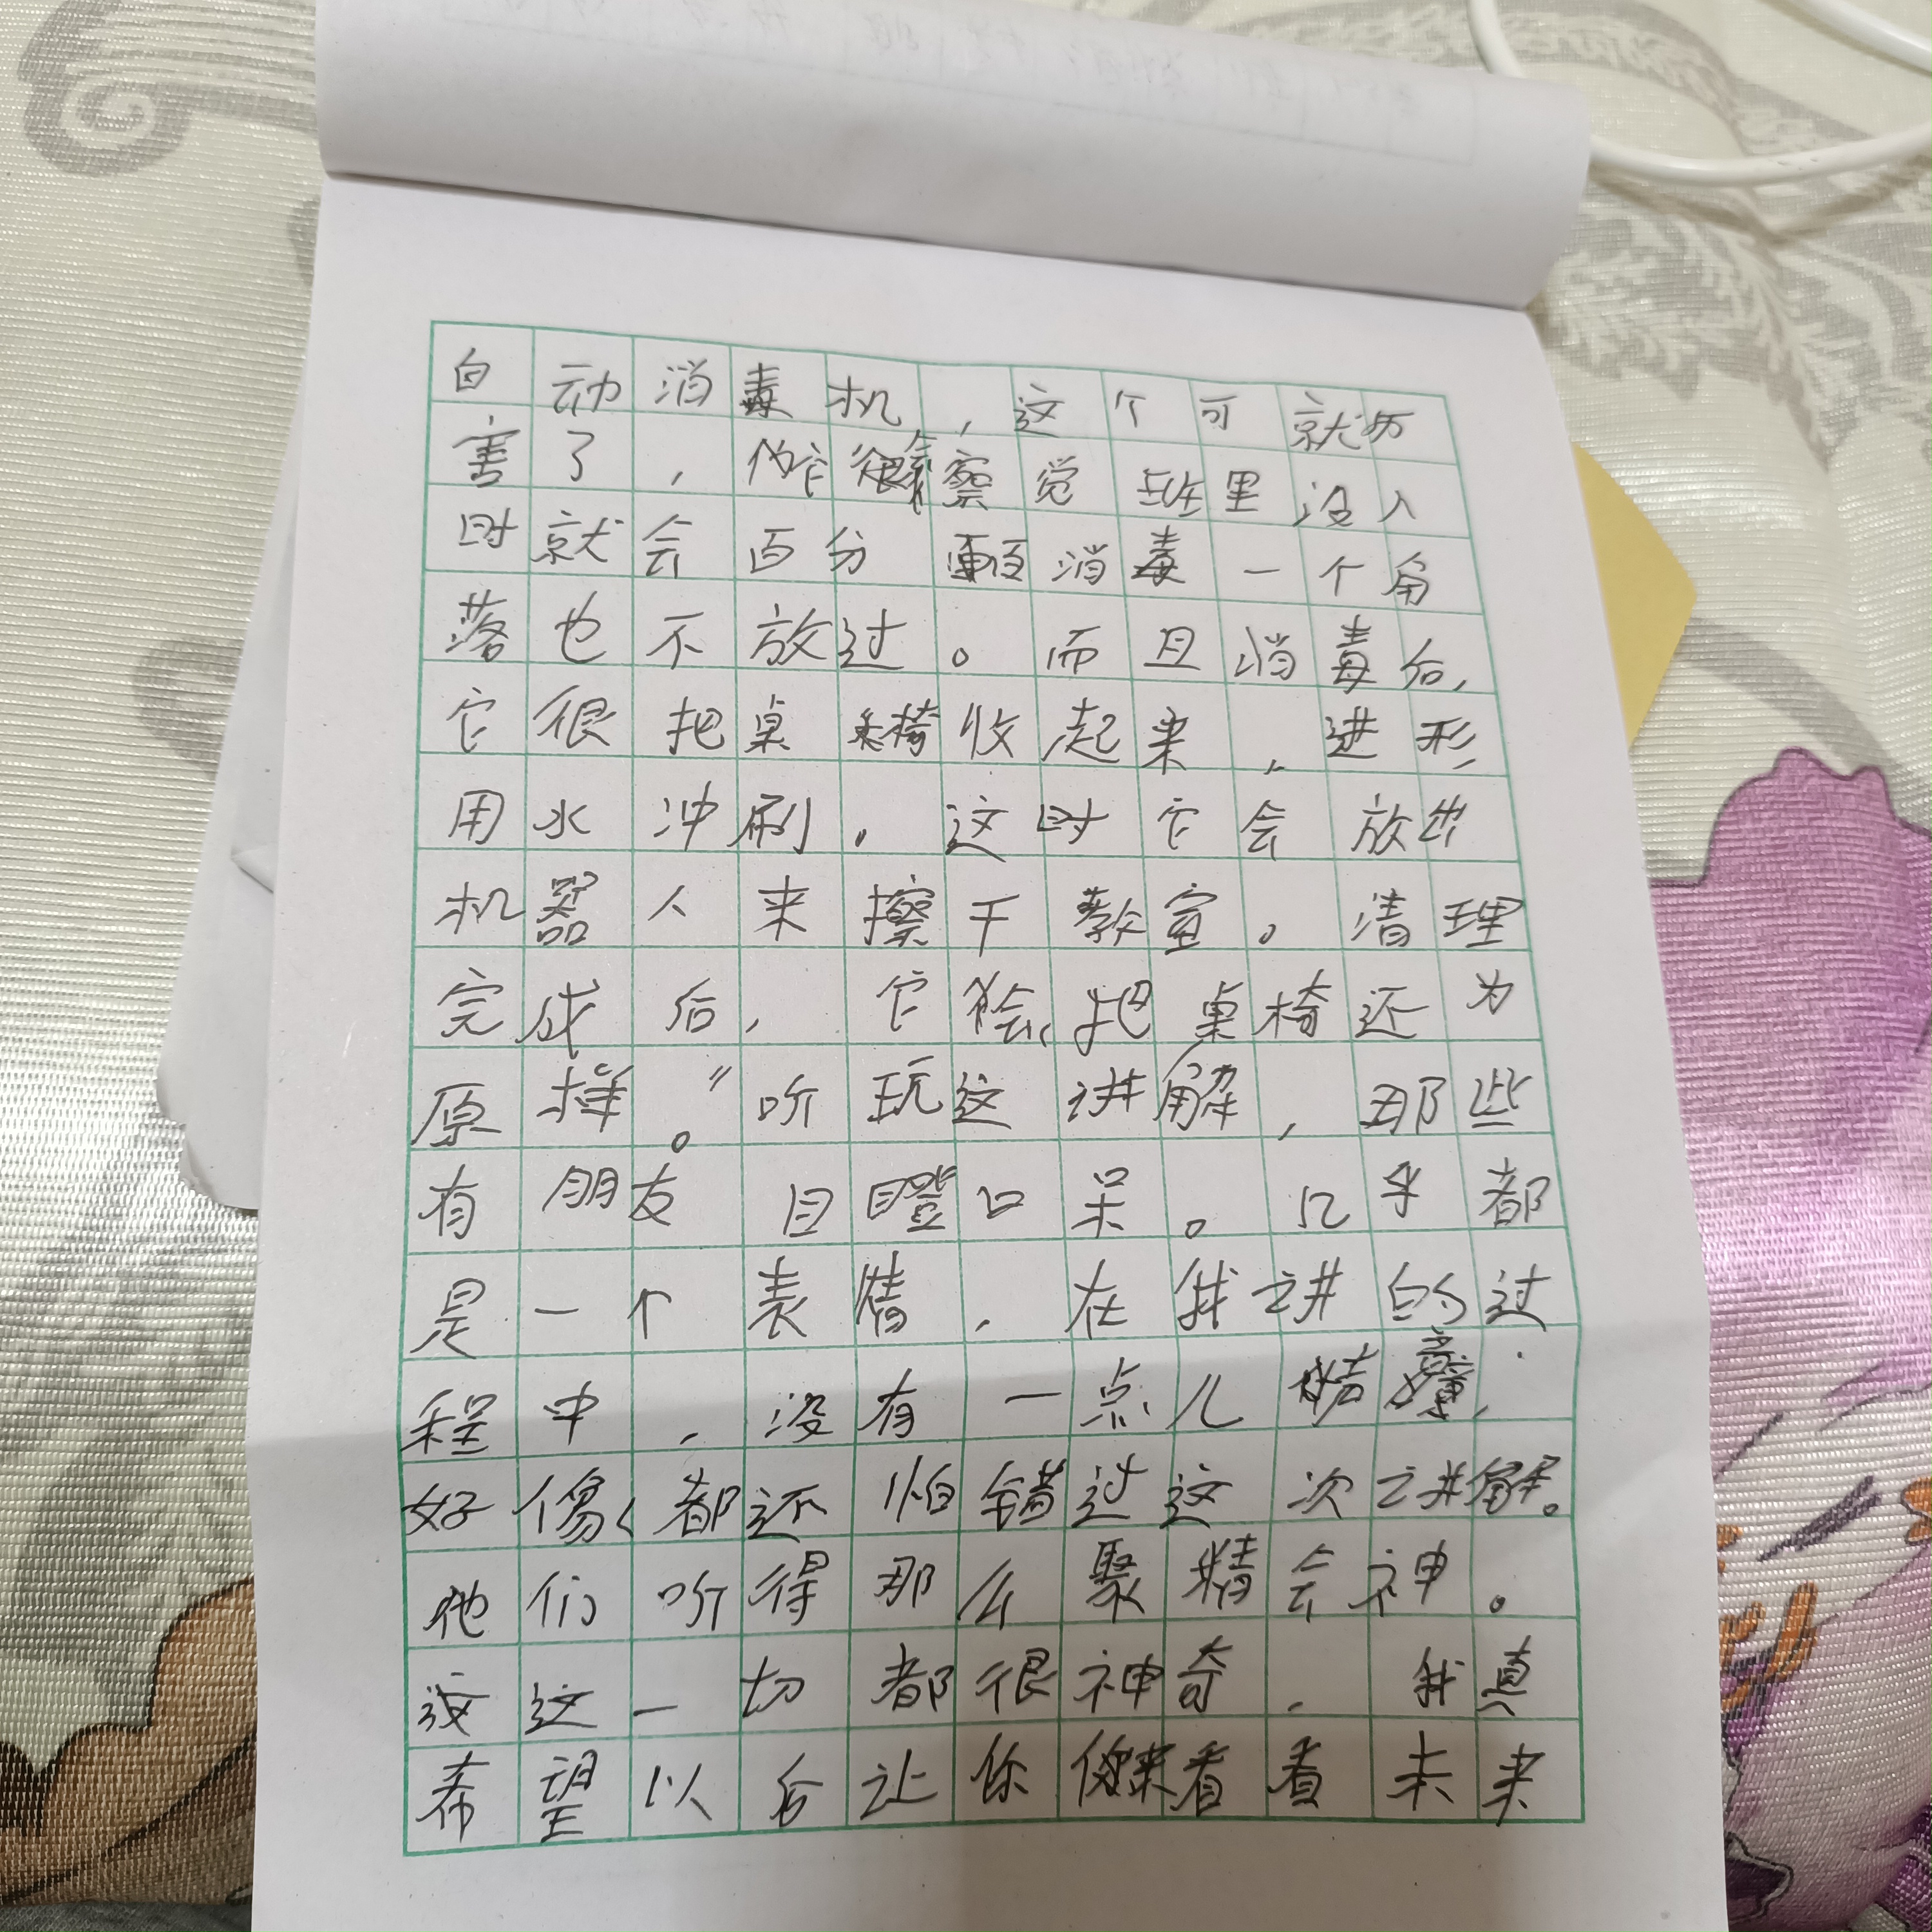 自动消毒机，这个可就厉
害了，它察觉班里没人
时就会百分消毒一个角
落也不放过。而且消毒后，
它很把桌椅收起来，进形
用水冲刷。这时它会放出
机器人来擦干教室。清理
完成后，它会把桌椅还为
原样。”听玩这讲解，那些
有朋友目瞪口呆。几乎都
是一个表情，在我讲的过
程中，没有一点儿
好像都还怕错过这次讲解。
他们听得那么聚精会神。
这这一切都很神奇，我真
希望以后让你来看看未来